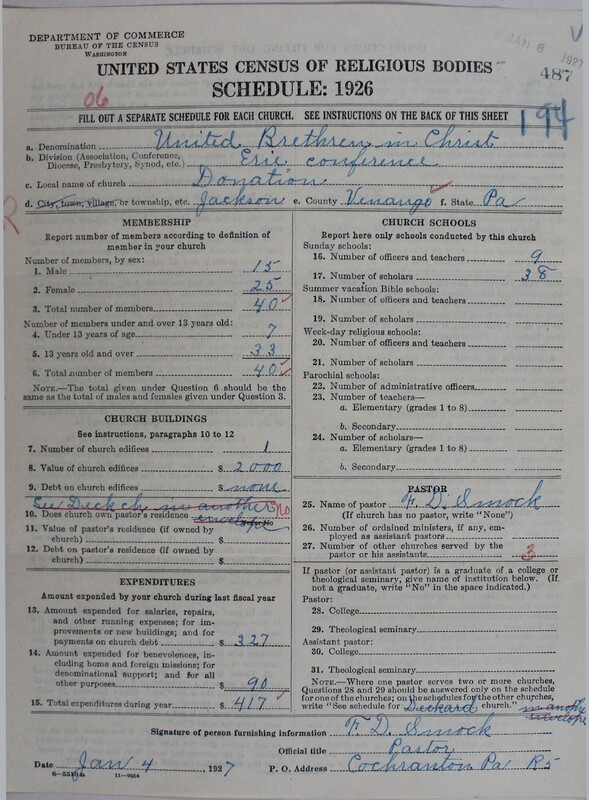 DEPARTMENT OF COMMERCE
BUREAU OF THE CENSUS
WASHINGTON
JAN 8 1927
487
UNITED STATES CENSUS OF RELIGIOUS BODIES
SCHEDULE: 1926
06
194
FILL OUT A SEPARATE SCHEDULE FOR EACH CHURCH. SEE INSTRUCTIONS ON THE BACK OF THIS SHEET
a. Denomination United Brethren in Christ
b. Division (Association, Conference, Diocese, Presbytery, Synod, etc.) Erie conference
c. Local name of church Donation
d. City, town, village, or township, etc. Jackson e. County Venango f. State Pa
R
MEMBERSHIP
Report number of members according to definition of
member in your church
Number of members, by sex:
1. Male 15
2. Female 25
3. Total number of members 40
Number of members under and over 13 years old:
4. Under 13 years of age 7
5. 13 years old and over 33
6. Total number of members 40
NOTE.—The total given under Question 6 should be
same as the total of males and females given under Question 3.
CHURCH BUILDINGS
See instructions, paragraphs 10 to 12
7. Number of church edifices 1
8. Value of church edifices $ 2000
9. Debt on church edifices $ none
See Deck ch in another
10. Does church own pastor's residence envelope No
Yes or No
11. Value of pastor's residence (if owned by
church) $
12. Debt on pastor's residence (if owned by
church) $
EXPENDITURES
Amount expended by your church during last fiscal year
13. Amount expended for salaries, repairs,
and other running expenses; for im-
provements or new buildings; and for
payments on church debt $ 327
14. Amount expended for benevolences, in-
cluding home and foreign missions; for
denominational support; and for all
other purposes $ 90
15. Total expenditures during year $ 417
CHURCH SCHOOLS
Report here only schools conducted by this church
Sunday schools:
16. Number of officers and teachers 9
17. Number of scholars 38
Summer vacation Bible schools:
18. Number of officers and teachers
19. Number of scholars
Week-day religious schools:
20. Number of officers and teachers
21. Number of scholars
Parochial schools:
22. Number of administrative officers
23. Number of teachers—
a. Elementary (grades 1 to 8)
b. Secondary
24. Number of scholars—
a. Elementary (grades 1 to 8)
b. Secondary
PASTOR
25. Name of pastor F. D. Smock
(If church has no pastor, write "None")
26. Number of ordained ministers, if any, em-
ployed as assistant pastors
27. Number of other churches served by the
pastor or his assistants 3
If pastor (or assistant pastor) is a graduate of a college or
theological seminary, give name of institution below. (If
not a graduate, write "No" in the space indicated.)
Pastor:
28. College
29. Theological seminary
Assistant pastor:
30. College
31. Theological seminary
NOTE.—Where one pastor serves two or more churches,
Questions 28 and 29 should be answered only on the schedule
for one of the churches; on the schedules for the other churches,
write "See schedule for Deckard church." in another
envelope
Signature of person furnishing information F. D. Smock
Official title Pastor
Date Jan 4, 1927 P. O. Address Cochranton Pa R5
11—9664